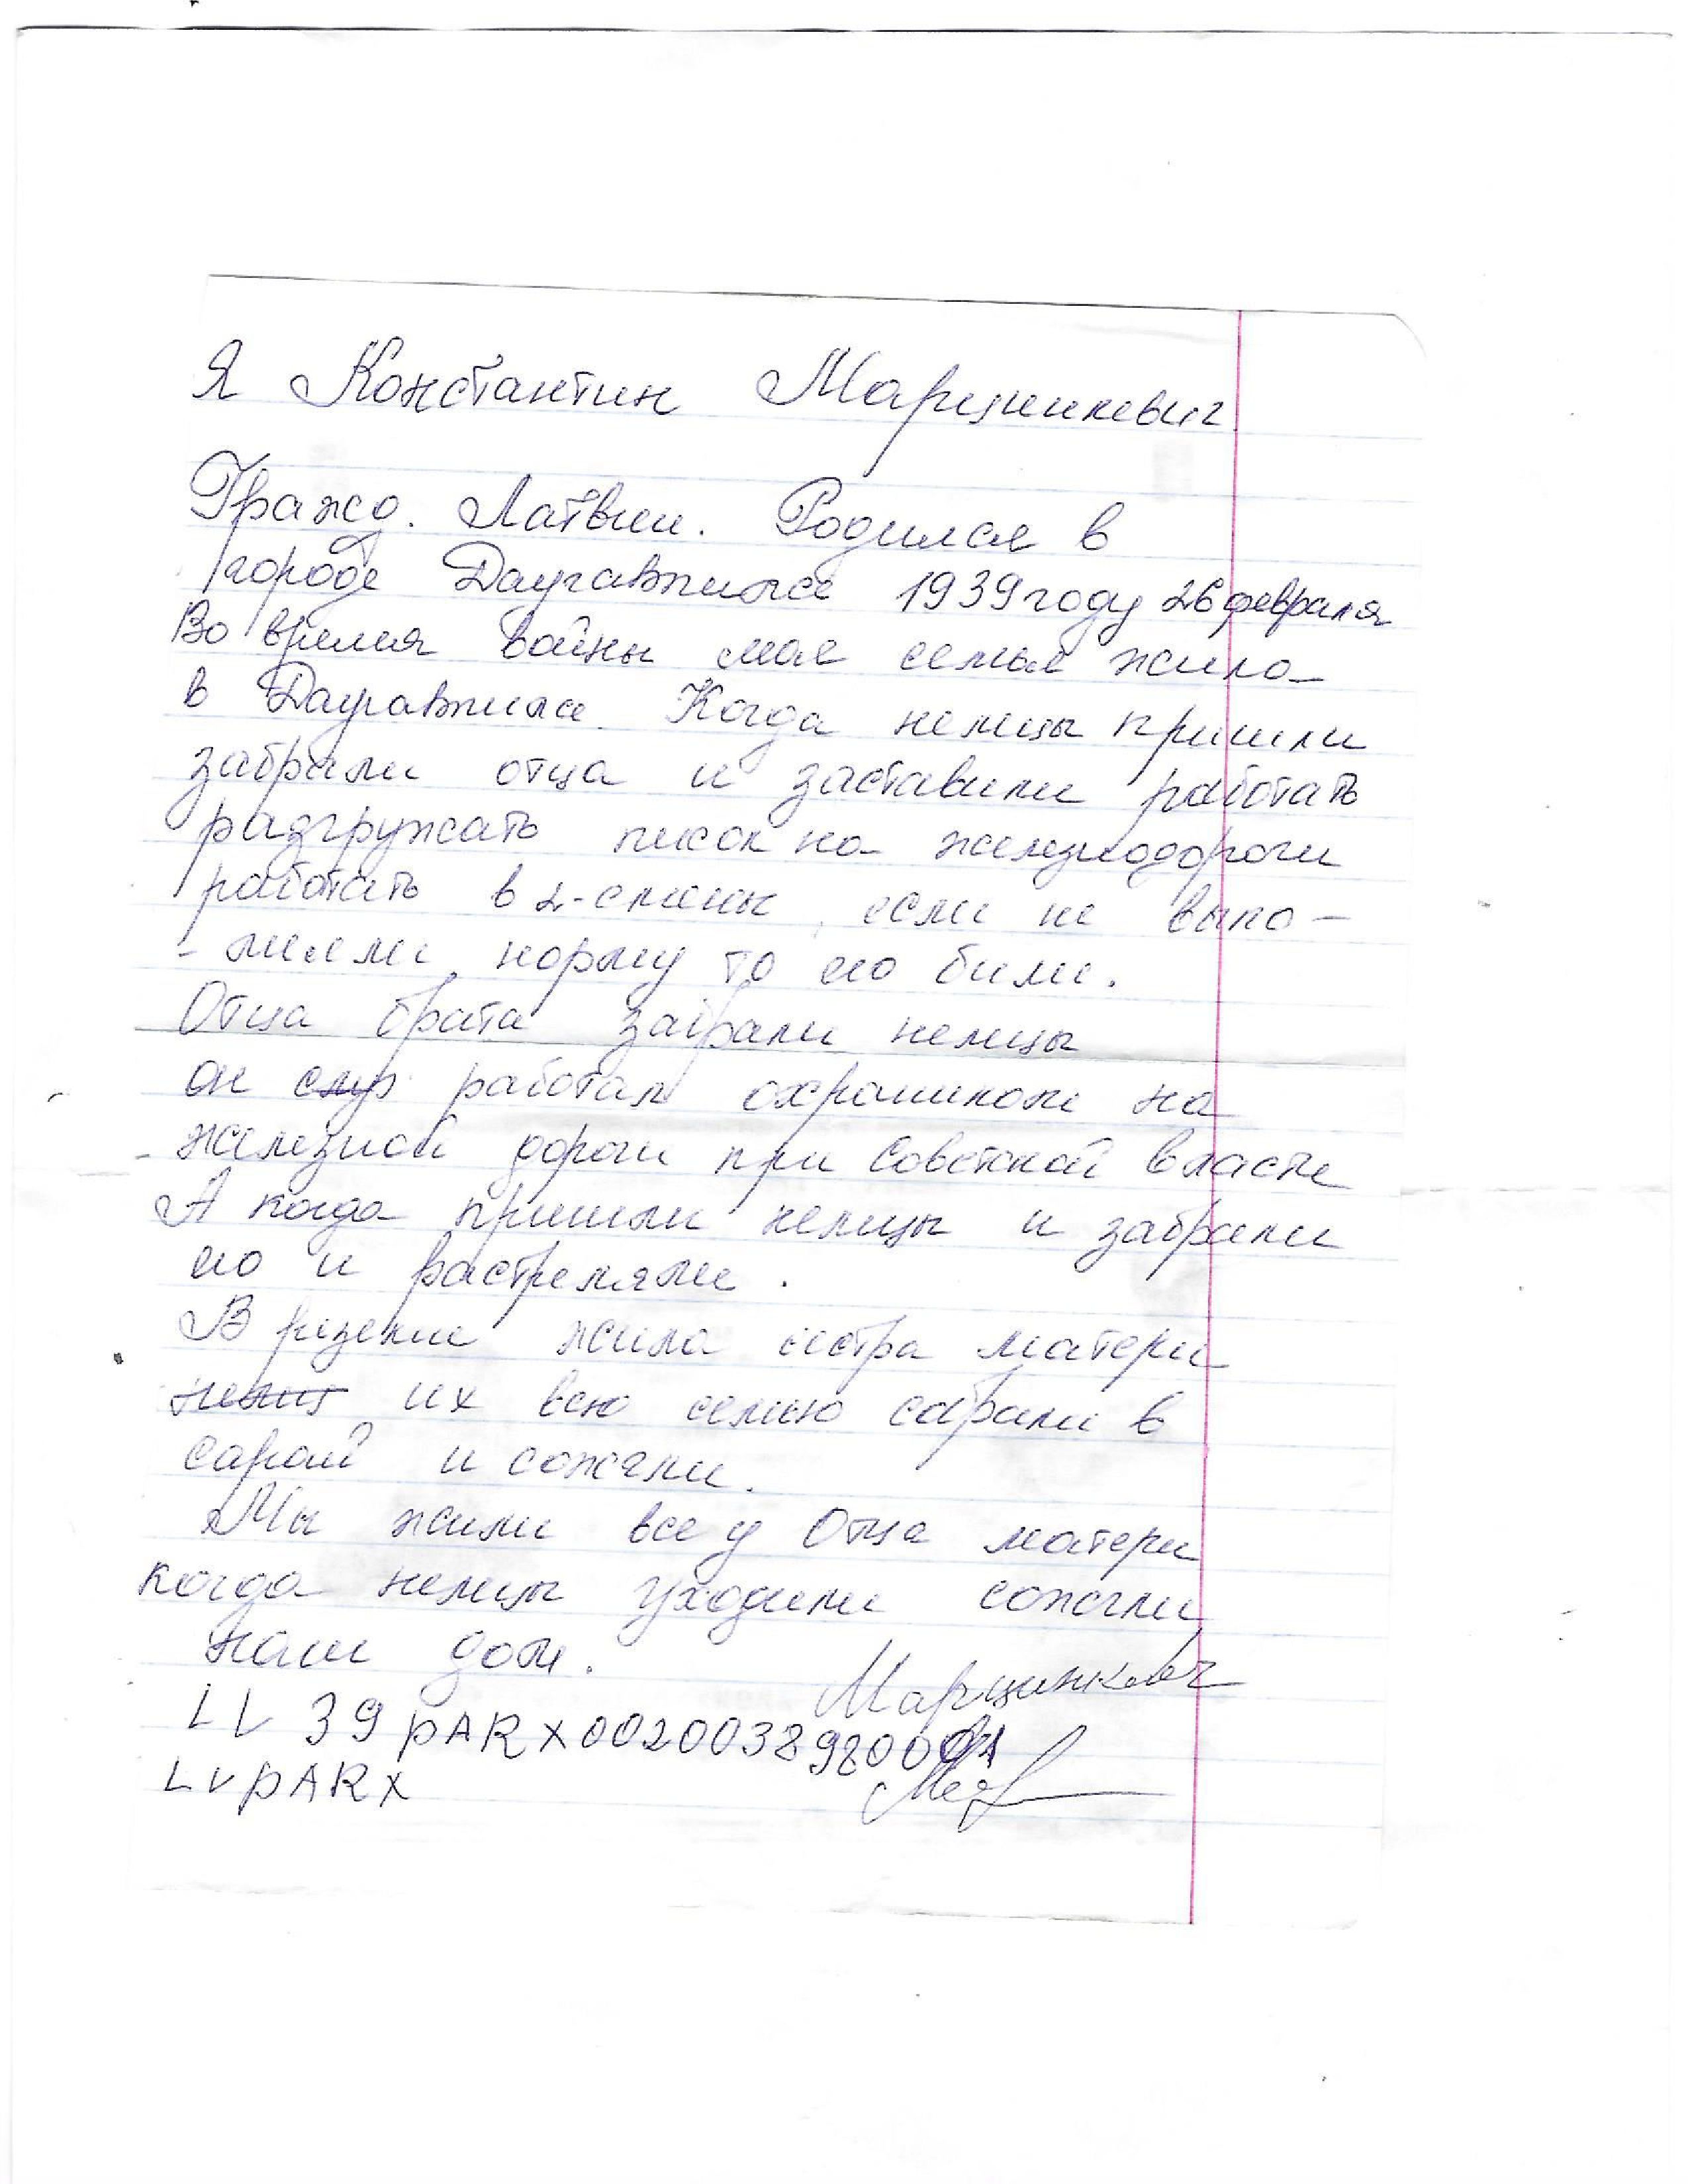 Я Константин Марцинкевич
Гражд. Латвии. Родился в
городе Даугавпилсе 1939 году 26 февраля
Во время войны моя семья жила
в Даугавпилсе. Когда немцы пришли
забрали отца и заставили работать
разгружать песок на железнодороги
работать в 2-смены, если не выпо-
-лняли норму то его били.
Отца брата забрали немцы
он работал охраником на
железной дороги при Советской власти
А когда пришли немцы и забрали
его и растреляли.
В жила сестра матери
их всю семью собрали в
сарай и сожгли.
Мы жили все у Отца матери
когда немцы уходили сожгли
наш дом. Марцинкевич
LV 39 PARX
LVPARX